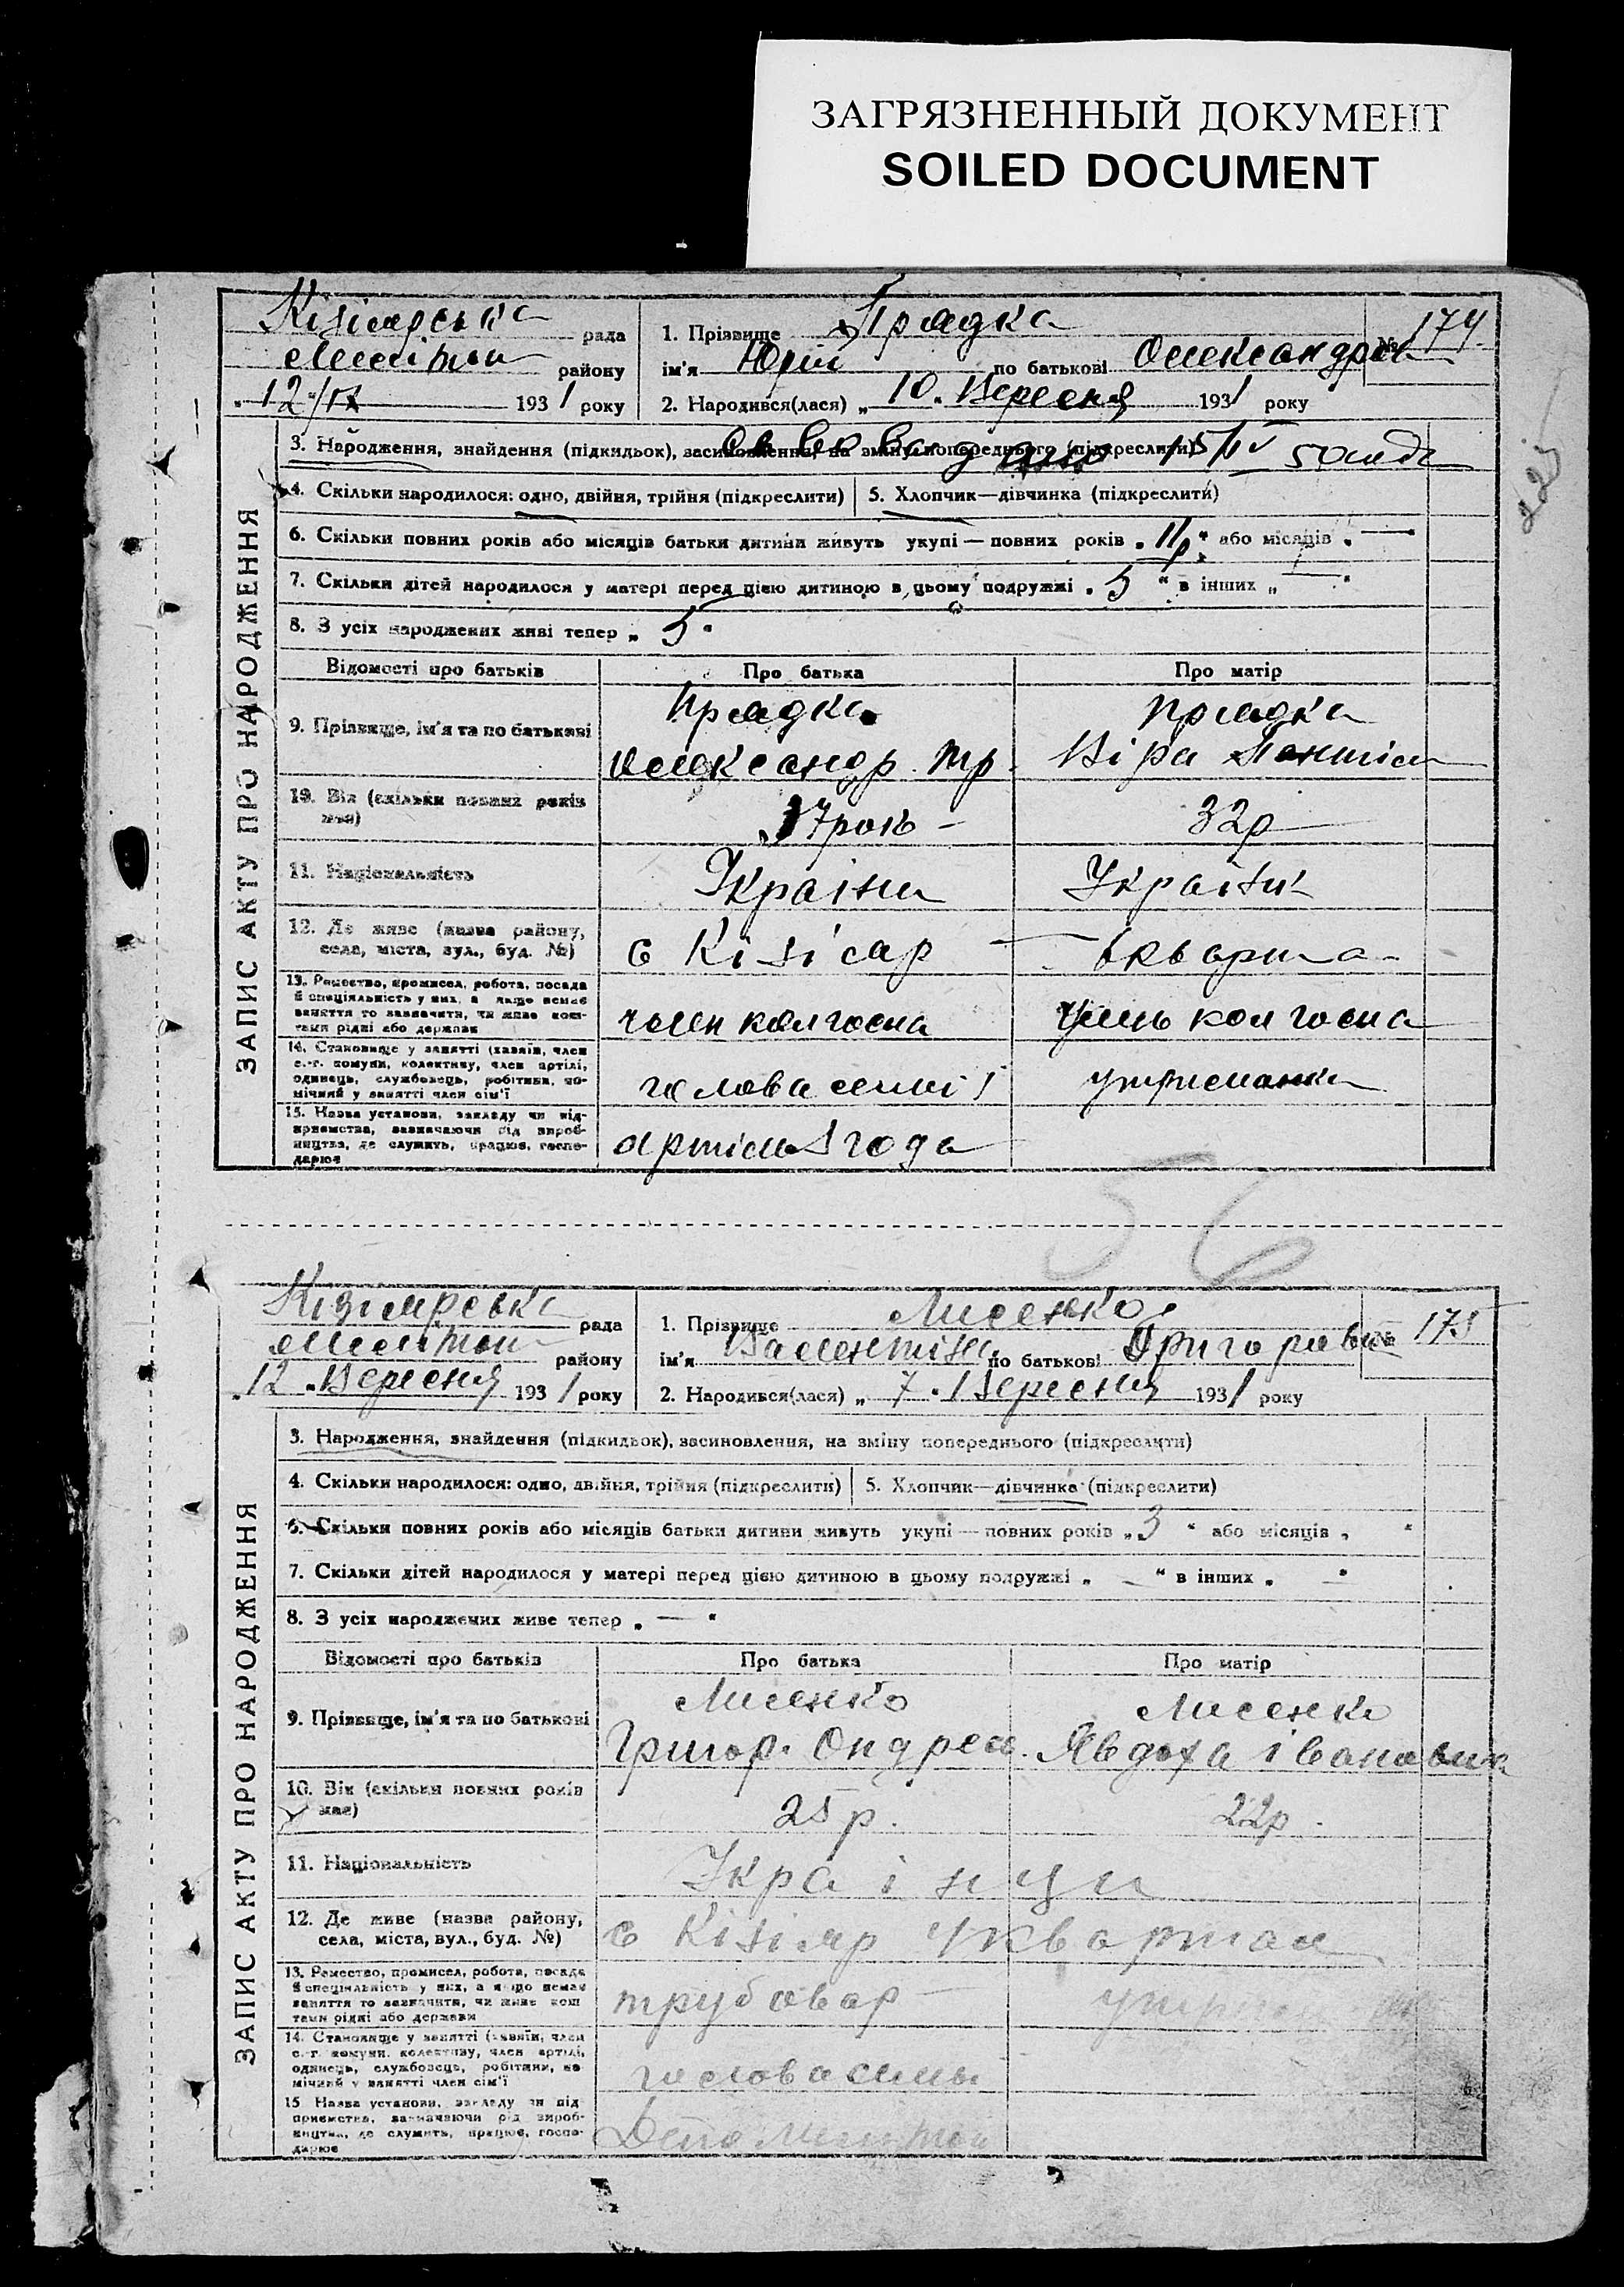 ЗАГРЯЗНЕННЫЙ ДОКУМЕНТ
SOILED DOCUMENT
Кізіярська рада
Мелітоп району
"12/IX 1931 року
1. Прізвище Прядка
№ 174
ім'я Юрій по батькові Олександров
2. Народився(лася) „ 10 " Вересня 1931 року
ЗАПИС АКТУ ПРО НАРОДЖЕННЯ
3. Народження, знайдення (підкидьок), засиновлення, на зміну попереднього (підкреслити)
4. Скільки народилося: одно, двійня, трійня (підкреслити)
5. Хлопчик—дівчинка (підкреслити)
6. Скільки повних років або місяців батьки дитини живуть укупі — повних років „ 11р " або місяців „ — "
7. Скільки дітей народилося у матері перед цією дитиною в цьому подружжі „ 5 " в інших „ — "
8. З усіх народжених живі тепер „ 5 "
Відомості про батьків Про батька Про матір
9. Прізвище, ім'я та по батькові
Прядка Прядка
Олександр Тр. Віра
10. Вік (скільки повних років має)
37рок 32р
11. Національність
Україн Українк
12. Де живе (назва району, села, міста, вул., буд. №)
с Кізіяр
13. Ремество, промисел, робота, посада й спеціяльність у них, а якщо немає заняття то зазначити, чи живе коштами рідні або держави
член колгоспа член колгоспа
14. Становище у занятті (хазяїн, член с.-г. комуни, колективу, член артілі, одинець, службовець, робітник, помічний у занятті член сім'ї
голова семиї утриманка
15. Назва установи, закладу чи підприємства, зазначаючи рід виробництва, де служить, працює, господарює
56
Кізіярська рада
Мелітоп району
"12 " Вересня 1931 року
1. Прізвище Лисенко
№ 175
ім'я Валентіна по батькові Григоровна
2. Народився(лася) „ 7 " Вересня 1931 року
ЗАПИС АКТУ ПРО НАРОДЖЕННЯ
3. Народження, знайдення (підкидьок), засиновлення, на зміну попереднього (підкреслити)
4. Скільки народилося: одно, двійня, трійня (підкреслити)
5. Хлопчик—дівчинка (підкреслити)
6. Скільки повних років або місяців батьки дитини живуть укупі — повних років „ 3 " або місяців „ "
7. Скільки дітей народилося у матері перед цією дитиною в цьому подружжі „ — " в інших „ — "
8. З усіх народжених живе тепер „ — "
Відомості про батьків Про батька Про матір
9. Прізвище, ім'я та по батькові
Лисенко Лисенко
Григор. Ондреев. Явдоха Івановик
10. Вік (скільки повних років має)
25 р. 22р.
11. Національність
Українци
12. Де живе (назва району, села, міста, вул., буд. №)
с Кізіяр 4 квартал
13. Ремество, промисел, робота, посада й спеціяльність у них, а якщо немає заняття то зазначити, чи живе коштами рідні або держави
трубовар
14. Становище у занятті (хазяїн, член с.-г. комуни, колективу, член артілі, одинець, службовець, робітник, помічний у занятті член сім'ї
голова симы
15. Назва установи, закладу чи підприємства, зазначаючи рід виробництва, де служить, працює, господарює
Депо Мелітоп